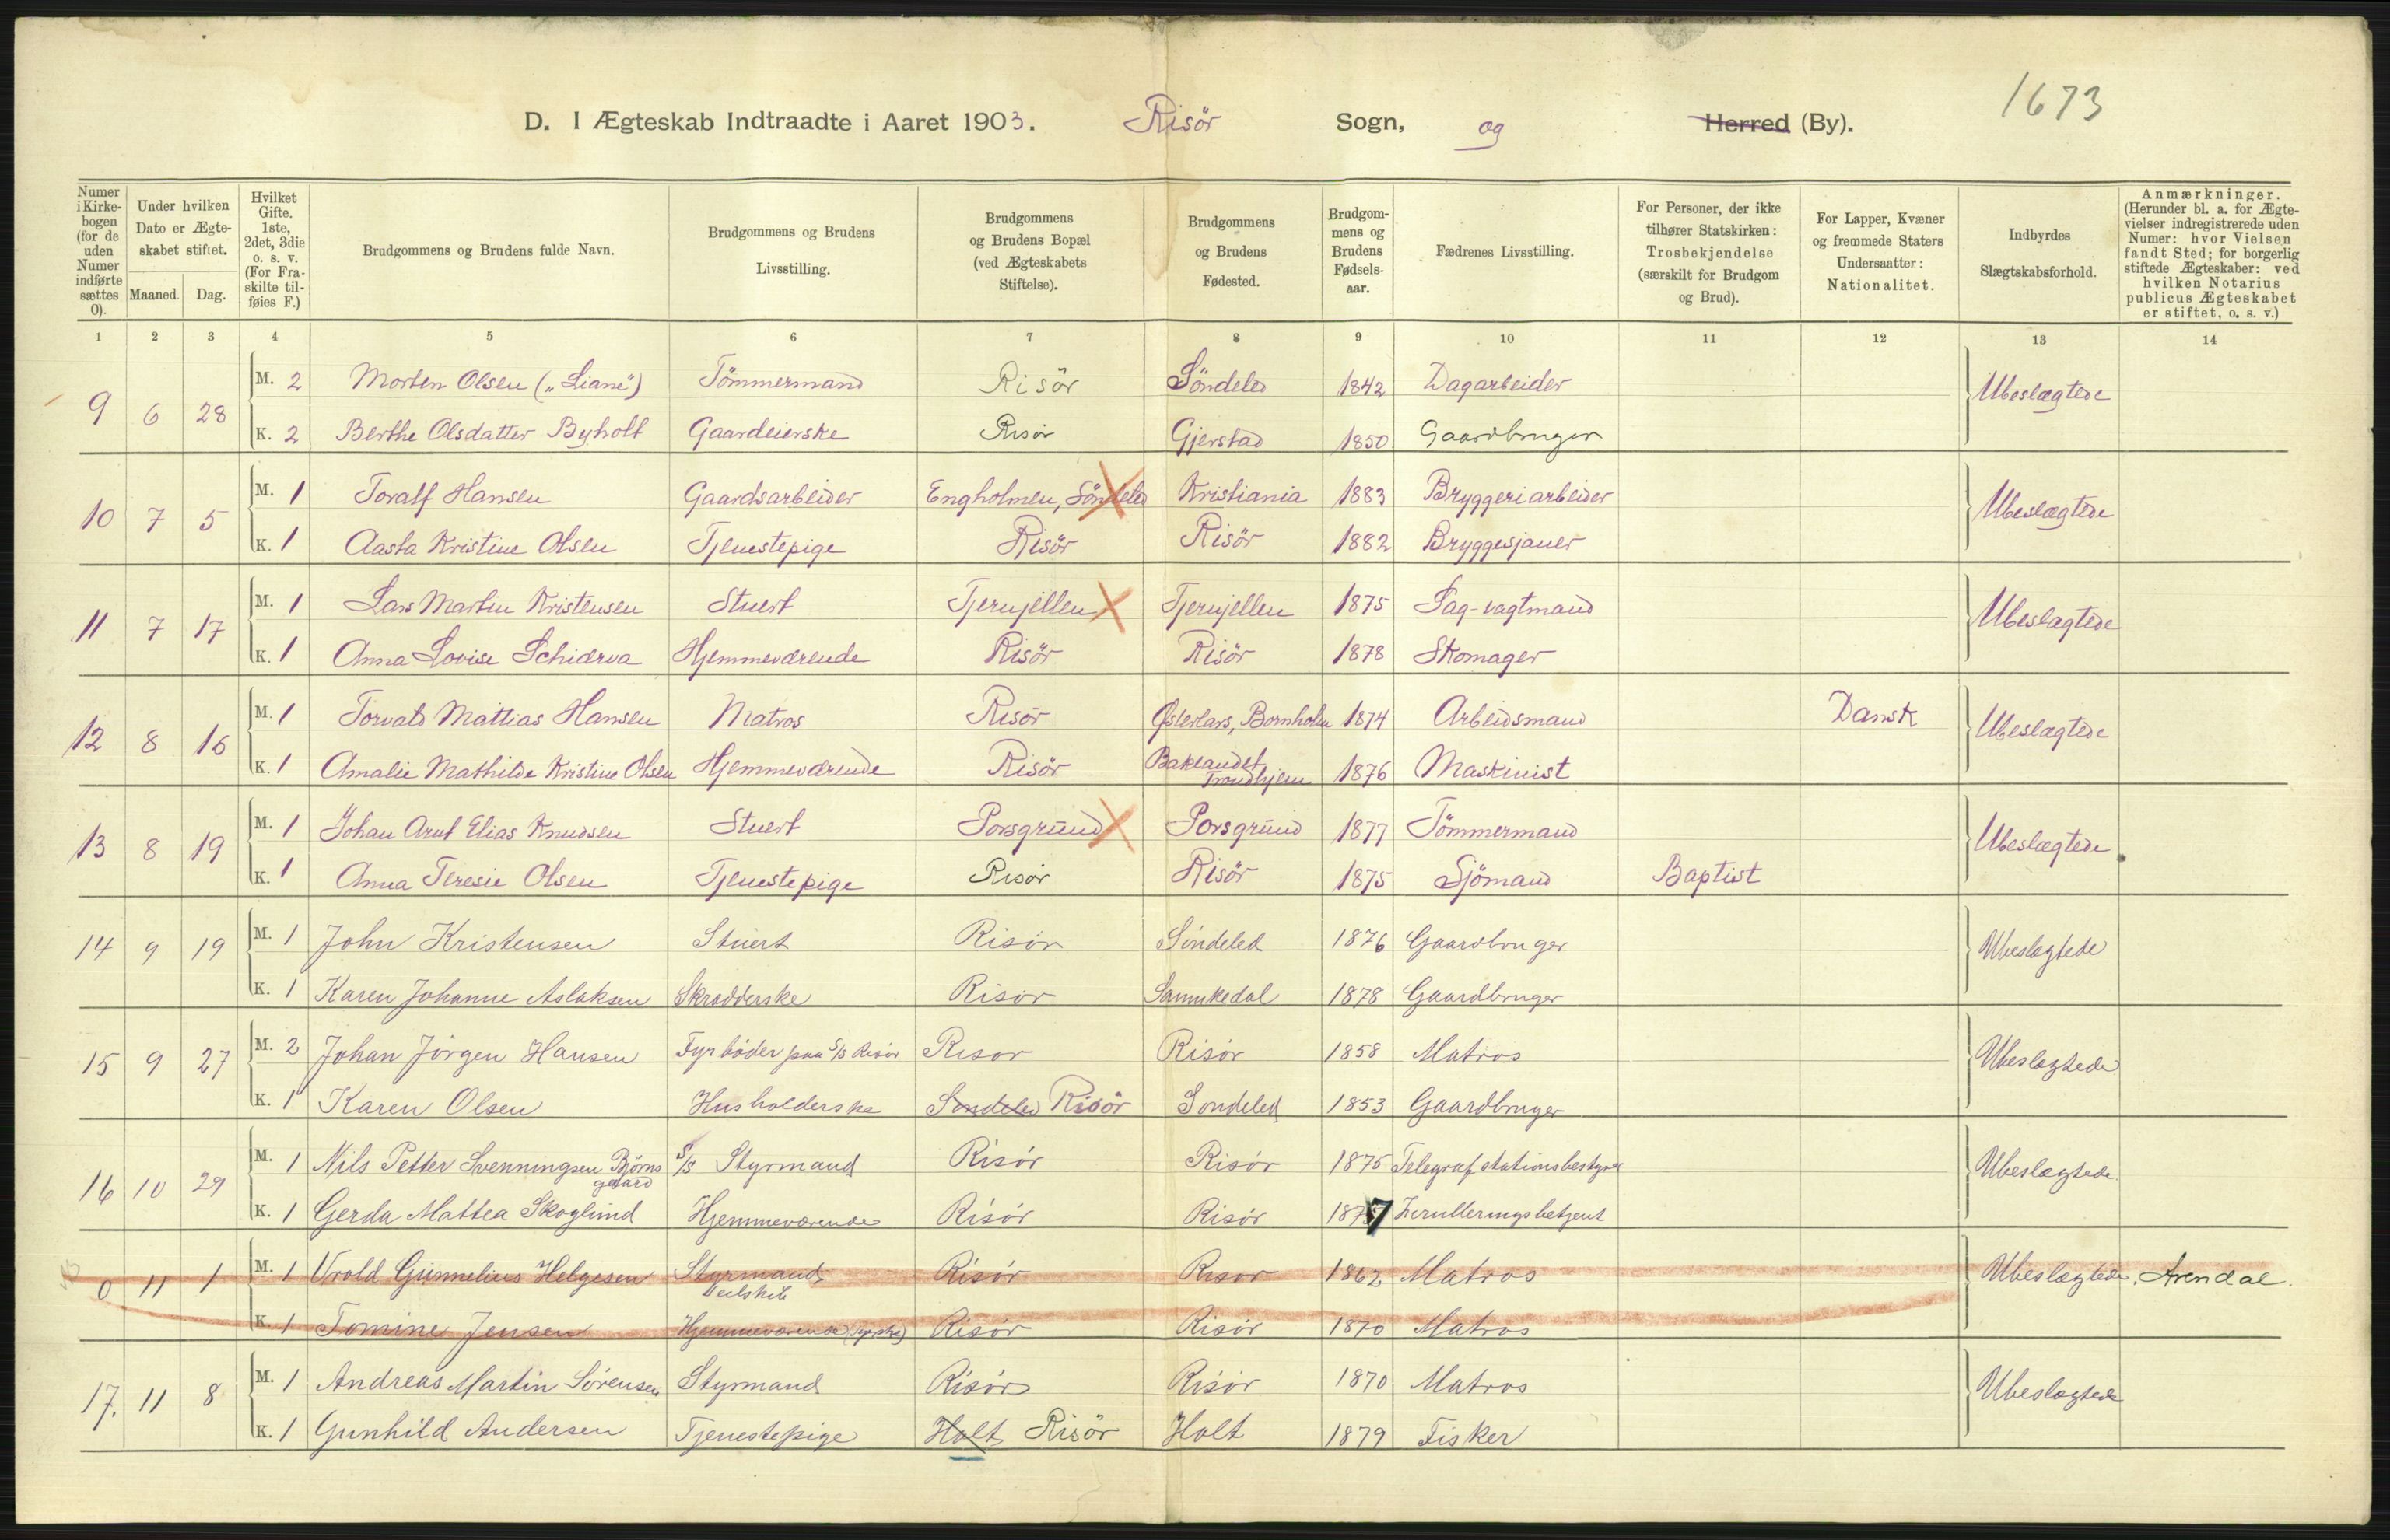 1673
D. I Ægteskab Indtraadte i Aaret 1903. Risör Sogn, og Herred (By).
Numer i Kirkebogen (for de uden Numer indførte sættes 0). Under hvilken Dato er Ægteskabet stiftet. Maaned. Dag. Hvilket Gifte. 1ste, 2det, 3die o. s. v. (For Fraskilte tilføies F.) Brudgommens og Brudens fulde Navn. Brudgommens og Brudens Livsstilling. Brudgommens og Brudens Bopæl (ved Ægteskabets Stiftelse). Brudgommens og Brudens Fødested. Brudgommens og Brudens Fødselsaar. Fædrenes Livsstilling. For Personer, der ikke tilhører Statskirken: Trosbekjendelse (særskilt for Brudgom og Brud). For Lapper, Kvæner og fremmede Staters Undersaatter: Nationalitet. Indbyrdes Slægtskabsforhold. Anmærkninger. (Herunder bl. a. for Ægtevielser indregistrerede uden Numer: hvor Vielsen fandt Sted; for borgerlig stiftede Ægteskaber: ved hvilken Notarius publicus Ægteskabet er stiftet, o. s. v.)
1 2 3 4 5 6 7 8 9 10 11 12 13 14
9 6 28 M. 2 Morten Olsen („Liane") Tömmermand Risör Söndeled 1842 Dagarbeider Ubeslægtede
K. 2 Berthe Olsdatter Byholt Gaardeierske Risör Gjerstad 1850 Gaardbruger
10 7 5 M. 1 Toralf Hansen Gaardsarbeider Engholmen, Söndeled Kristiania 1883 Bryggeriarbeider Ubeslægtede
K. 1 Aasta Kristine Olsen Tjenestepige Risör Risör 1882 Bryggesjauer
11 7 17 M. 1 Lars Martin Kristensen Stuert Tjernjellen Tjernjellen 1875 Sag-vagtmand Ubeslægtede
K. 1 Anna Lovise Schiærva Hjemmeværende Risör Risör 1878 Skomager
12 8 16 M. 1 Torvald Mattias Hansen Matros Risör Østerlars, Bornholm 1874 Arbeidsmand Dansk Ubeslægtede
K. 1 Amalie Mathilde Kristine Olsen Hjemmeværende Risör Baklandet Trondhjem 1876 Maskinist
13 8 19 M. 1 Johan Arnt Elias Knudsen Stuert Porsgrund Porsgrund 1877 Tömmermand Ubeslægtede
K. 1 Anna Teresie Olsen Tjenestepige Risör Risör 1875 Sjömand Baptist
14 9 19 M. 1 John Kristensen Stuert Risör Söndeled 1876 Gaardbruger Ubeslægtede
K. 1 Karen Johanne Aslaksen Skrædderske Risör Sannikedal 1878 Gaardbruger
15 9 27 M. 2 Johan Jörgen Hansen Fyrböder paa S/S Risör Risör Risör 1858 Matros Ubeslægtede
K. 1 Karen Olsen Husholderske Söndeled Risör Söndeled 1853 Gaardbruger
16 10 29 M. 1 Nils Petter Svenningsen Bjørnsgaard S/S Styrmand Risör Risör 1875 Telegrafstationsbestyrer Ubeslægtede
K. 1 Gerda Mattea Skoglund Hjemmeværende Risör Risör 1877
0 11 1 M. 1 Vrold Gunnelius Helgesen Styrmand Seilskib Risör Risör 1862 Matros Ubeslægtede. Arendal.
K. 1 Tomine Jensen Hjemmeværende (syerske) Risör Risör 1870 Matros
17. 11 8 M. 1 Andreas Martin Sörensen Styrmand Risör Risör 1870 Matros Ubeslægtede
K. 1 Gunhild Andersen Tjenestepige Holt Risör Holt 1879 Fisker